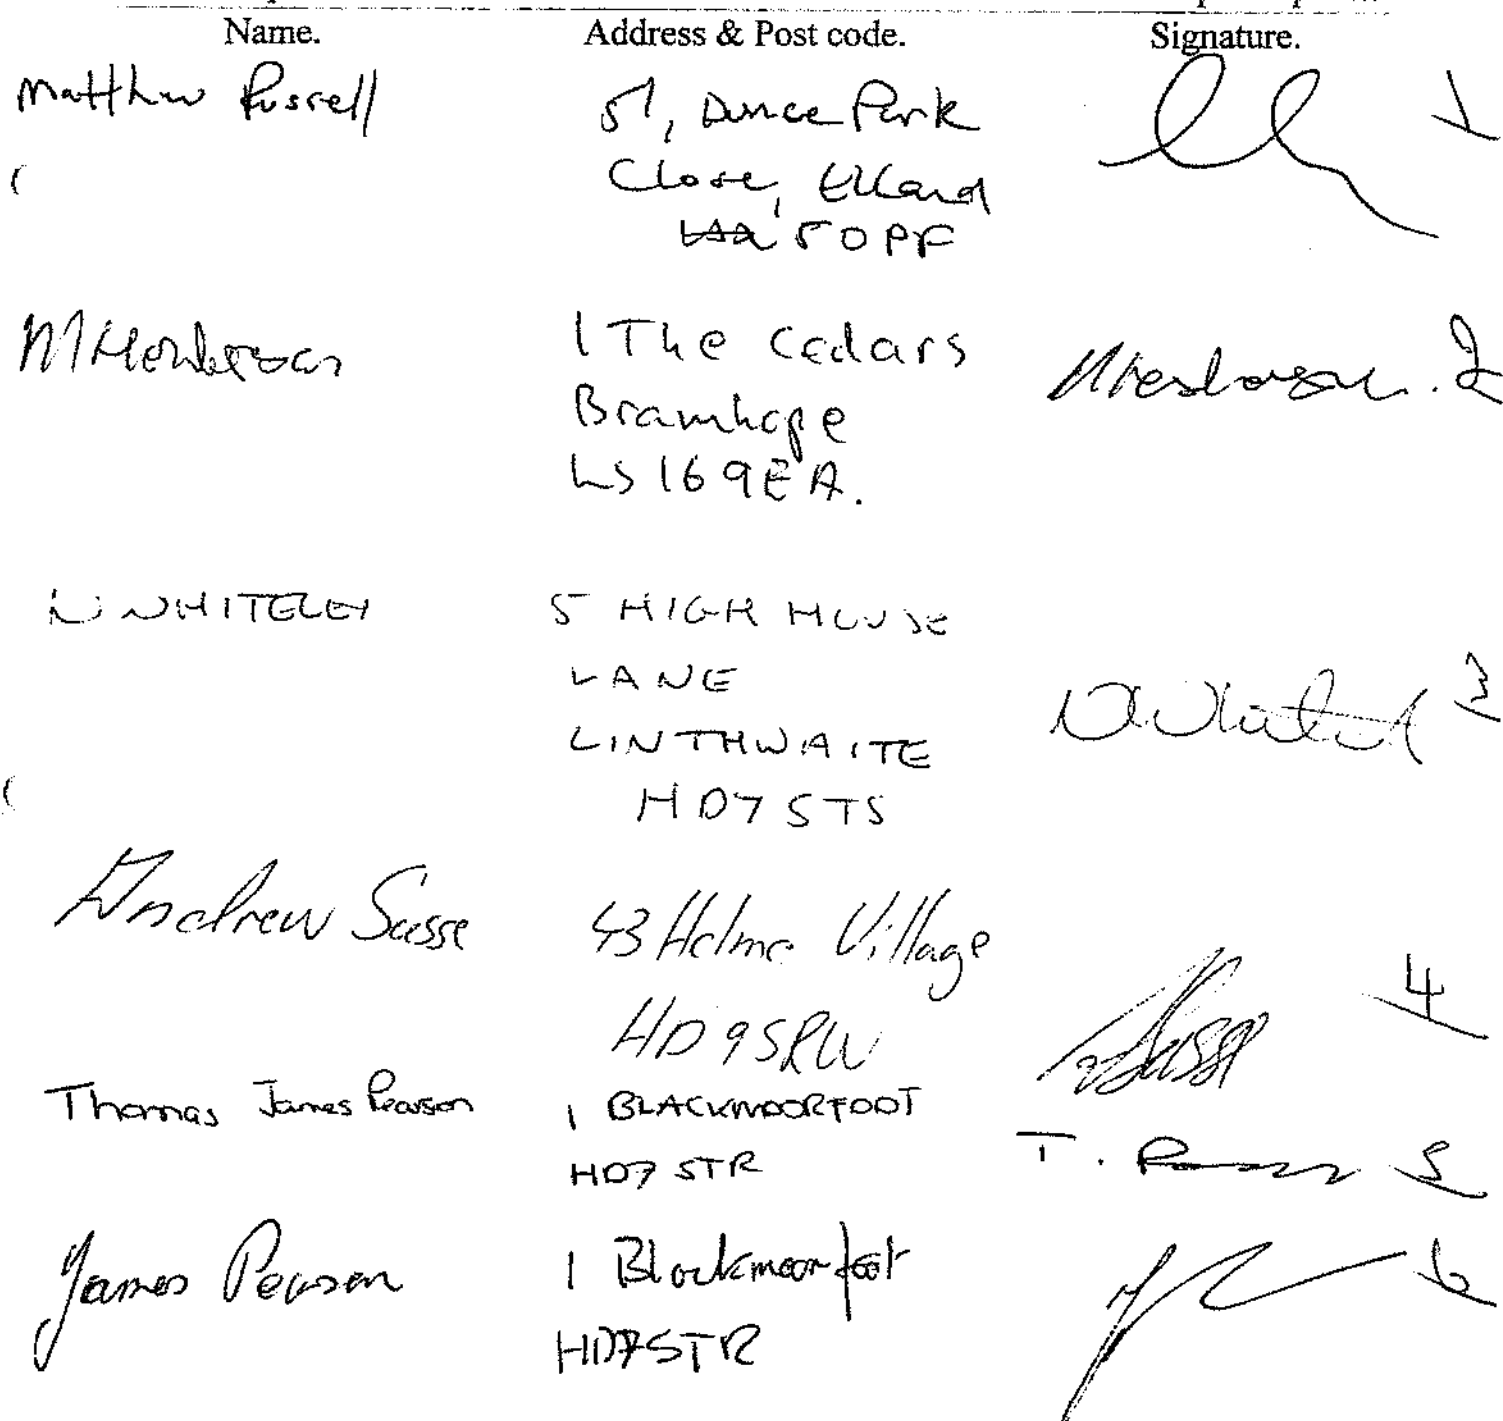 Name. Address & Post code. Signature.
Matthew Russell 51, Dunce Park 1
Close, Elland
5 0PF
M Henderson 1 The Cedars 2
Bramhope
LS16 9EA.
N WHITELEY 5 HIGH HOUSE
LANE 3
LINTHWAITE
HD7 5TS
Andrew Sasse 43 Helme Village
HD9 5RW 4
Thomas James Pearson 1 BLACKMOORFOOT
HD7 5TR T. 5
James Pearson 1 Blackmoorfoot 6
HD7 5TR